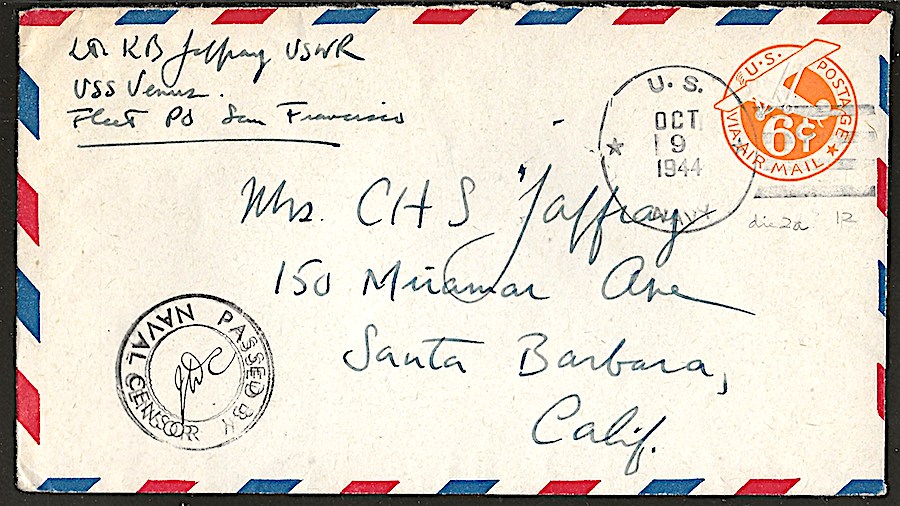 Ltr KB Jaffray USNR
USS Venus.
Fleet PO San Francisco
U.S.
OCT
19
1944
NAVY
U.S. POSTAGE
6¢
VIA·AIR MAIL
die2a 12
Mrs. CHS Jaffray
150 Miramar Ave
Santa Barbara,
Calif.
PASSED BY
NAVAL CENSOR